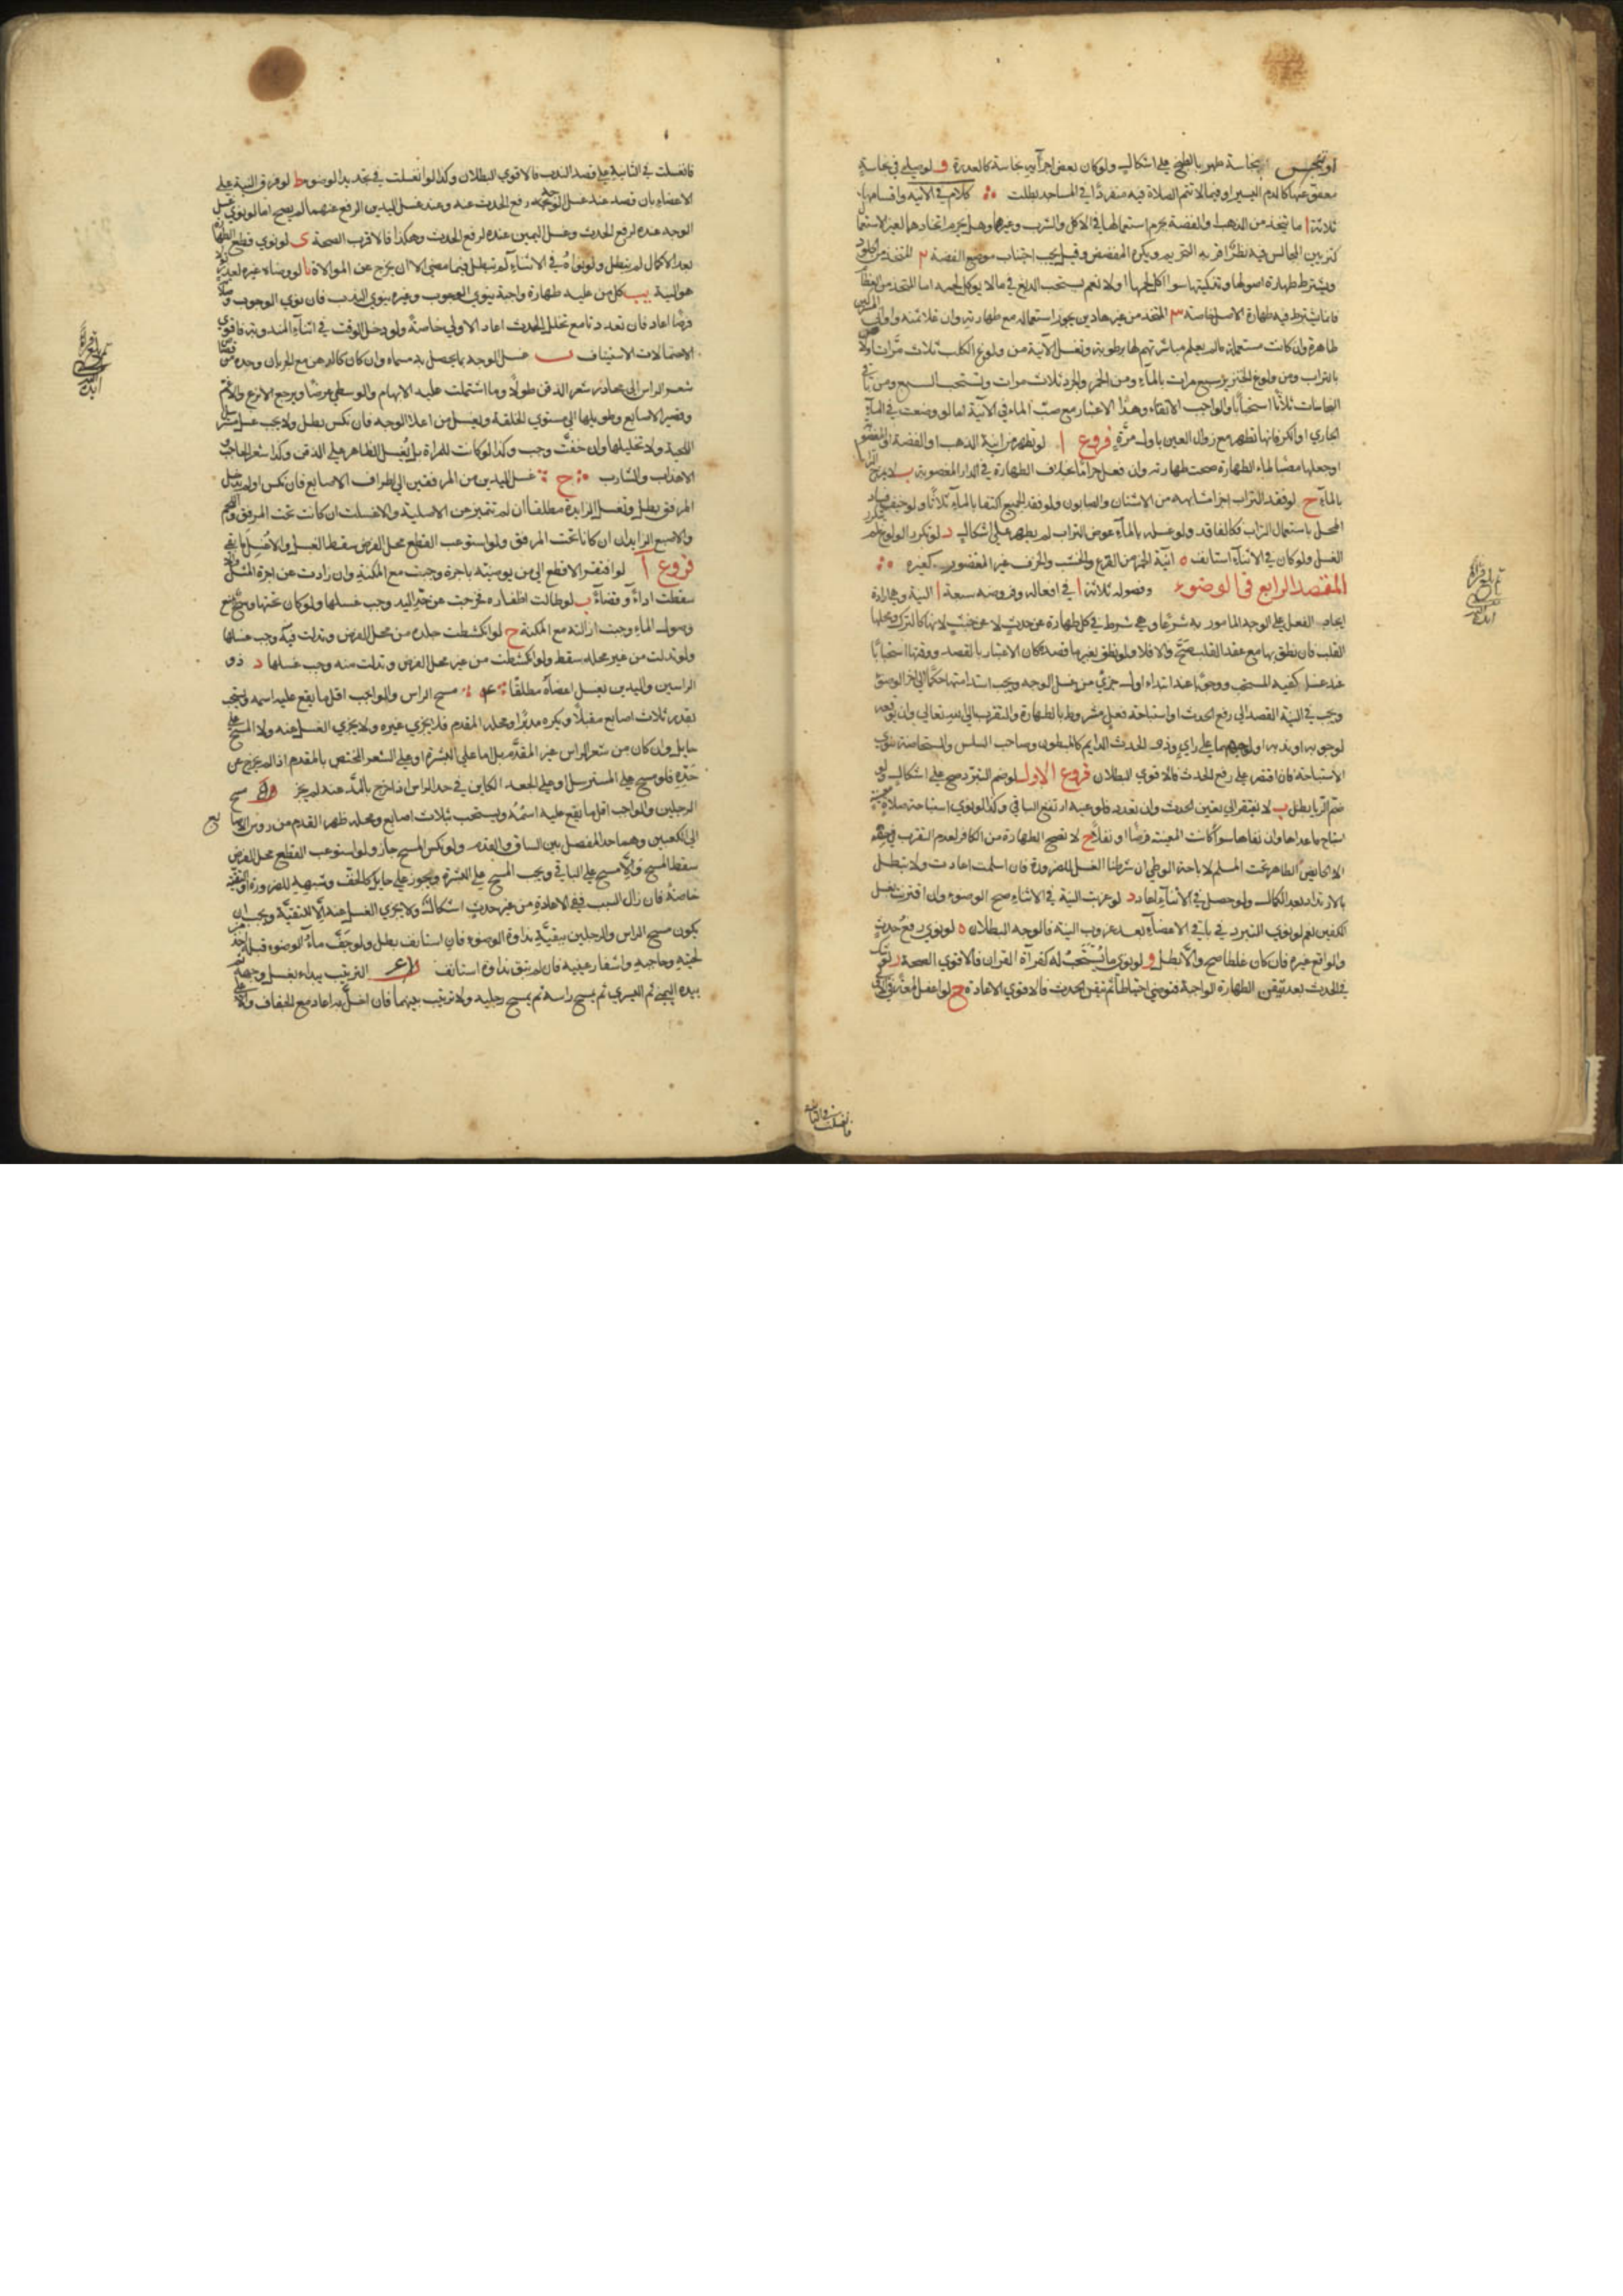 او نجس بنجاسة طهر بالطبخ على اشكال ولو كان بعض اجزائه نجاسة كالعذرة و لو صلى في نجاسة
معفو عنها كالدم اليسير او فيما لا تتم الصلاة فيه منفردا في المساجد بطلت كلام في الآنية واقسامها
ثلاثة ا ما يتخذ من الذهب والفضة يحرم استعمالها في الاكل والشرب وغيرهما وهل يحرم اتخاذهما لغير الاستعمال
كتزيين المجالس فيه نظر اقربه التحريم ويكره المفضض وقيل يجب اجتناب موضع الفضة ٢ المتخذ من الجلود
ويشترط طهارة اصولها وتذكيتها سوا اكل لحمها او لا نعم يستحب الدبغ في ما لا يوكل لحمه اما المتخذ من العظام
فانما يشترط فيه طهارة الاصل خاصة ٣ المتخذ من غير هاذين يجوز استعماله مع طهارته وان غلا ثمنه واواني المشركين
طاهرة وان كانت مستعملة ما لم يعلم مباشرتهم لها برطوبة وتغسل الآنية من ولوغ الكلب ثلاث مرات اولاهن
بالتراب ومن ولوغ الخنزير سبع مرات بالماء ومن الخمر والجرذ ثلاث مرات وتستحب السبع ومن باقي
النجاسات ثلاثا استحبابا والواجب الانقاء وهذا الاعتبار مع صب الماء في الآنية اما لو وضعت في الماء
الجاري او الكر فانها تطهر مع زوال العين باول مرة فروع ا لو تطهر من آنية الذهب او الفضة او المغصوبة
او جعلها مصبا لماء الطهارة صحت طهارته وان فعل حراما بخلاف الطهارة في الدار المغصوبة ب لا يمزج التراب
بالماء ح لو فقد التراب اجزا مشابهه من الاشنان والصابون ولو فقد الجميع اكتفا بالماء ثلاثا ولو خيف فساد
المحل باستعمال التراب فكالفاقد ولو غسله بالماء عوض التراب لم يطهر على اشكال د لو تكرر الولوغ لم يتكرر
الغسل ولو كان في الاثناء استانف ه آنية الخمر من القرع والخشب والخزف غير المغضور كغيره
المقصد الرابع في الوضوء وفصوله ثلاثة ا في افعاله وفروضه سبعة ا النية وهي ارادة
ايجاد الفعل على الوجه المامور به شرعا وهي شرط في كل طهارة عن حدث لا عن خبث لانها كالترك ومحلها
القلب فان نطق بها مع عقد القلب صح والا فلا ولو نطق بغير ما قصده كان الاعتبار بالقصد ووقتها استحبابا
عند غسل كفيه المستحب ووجوبا عند ابتداء اول جزء من غسل الوجه ويجب استدامتها حكما الى آخر الوضوء
ويجب في النية القصد الى رفع الحدث او استباحة فعل مشروط بالطهارة والتقرب الى الله تعالى وان يوقعه
لوجوبه او ندبه او لوجههما على راي وذو الحدث الدايم كالمبطون وصاحب السلس والمستحاضة ينوي
الاستباحة فان اقتصر على رفع الحدث فالاقوى البطلان فروع الاول لو ضم التبرد صح على اشكال ولو
ضم الريا بطل ب لا يفتقر الى تعيين الحدث وان تعدد فلو عينه ارتفع الباقي وكذا لو نوى استباحة صلاة معينة
استباح ما عداها وان نفاها سوا كانت المعينة فرضا او نفلا ح لا تصح الطهارة من الكافر لعدم التقرب في حقه
الا الحايض الطاهر تحت المسلم لاباحة الوطي ان شرطنا الغسل للضرورة فان اسلمت اعادت ولا تبطل
بالارتداد بعد الكمال ولو حصل في الاثناء اعاد د لو عزبت النية في الاثناء صح الوضوء وان اقترنت بغسل
الكفين نعم لو نوى التبرد في باقي الاعضاء بعد عزوب النية فالوجه البطلان ه لو نوى رفع حدث
والواقع غيره فان كان غلطا صح والا بطل و لو نوى ما يستحب له كقرآة القران فالاقوى الصحة ز لو شك
في الحدث بعد تيقن الطهارة الواجبة فتوضى احتياطا ثم تيقن الحدث فالاقوى الاعادة ح لو اغفل لمعة في الاولى
فانغسلت في الثانية
فانغسلت في الثانية على قصد الندب فالاقوى البطلان وكذا لو انغسلت في تجديد الوضوء ط لو فرق النية على
الاعضاء بان قصد عند غسل الوجه رفع الحدث عنه وعند غسل اليدين الرفع عنهما لم يصح اما لو نوى غسل
الوجه عنده لرفع الحدث وغسل اليمين عنده لرفع الحدث وهكذا فالاقرب الصحة ى لو نوى قطع الطهارة
بعد الاكمال لم تبطل ولو نواه في الاثناء لم تبطل فيما مضى الا ان يخرج عن الموالاة يا لو وضاه غيره لعذر تولى
هو النية يب كل من عليه طهارة واجبة ينوي الوجوب وغيره ينوي الندب فان نوى الوجوب وصلى
فرضا اعاد فان تعددتا مع تخلل الحدث اعاد الاولى خاصة ولو دخل الوقت في اثناء المندوبة فاقوى
الاحتمالات الاستيناف ب غسل الوجه بما يحصل به مسماه وان كان كالدهن مع الجريان وحده من قصاص
شعر الراس الى محادر شعر الذقن طولا وما اشتملت عليه الابهام والوسطى عرضا ويرجع الانزع والاغم
وقصير الاصابع وطويلها الى مستوي الخلقة ويغسل من اعلا الوجه فان نكس بطل ولا يجب غسل مسترسل
اللحية ولا تخليلها وان خفت وجب وكذا لو كانت للمراة بل يغسل الظاهر على الذقن وكذا شعر الحاجب
الاهداب والشارب ح غسل اليدين من المرفقين الى اطراف الاصابع فان نكس او لم يدخل
المرفق بطل وتغسل الزايدة مطلقا ان لم تتميز عن الاصلية والا غسلت ان كانت تحت المرفق واللحم
والاصبع الزايدان ان كانا تحت المرفق ولو استوعب القطع محل الفرض سقط الغسل والا غسل ما بقي
فروع ا لو افتقر الاقطع الى من يوضيه باجرة وجبت مع المكنة وان زادت عن اجرة المثل والا
سقطت اداء وقضاء ب لو طالت اظفاره فخرجت عن حد اليد وجب غسلها ولو كان تحتها وسخ يمنع
وصول الماء وجبت ازالته مع المكنة ح لو انكشطت جلده من محل الفرض وتدلت فيه وجب غسلها
ولو تدلت من غير محله سقط ولو انكشطت من غير محل الفرض وتدلت منه وجب غسلها د ذو
الراسين واليدين يغسل اعضاه مطلقا مسح الراس والواجب اقل ما يقع عليه اسمه ويستحب
بقدر ثلاث اصابع مقبلا ويكره مدبرا ومحله المقدم فلا يجزي غيره ولا يجزي الغسل عنه ولا المسح على
حايل وان كان من شعر الراس غير المقدم بل اما على البشرة او على الشعر المختص بالمقدم اذا لم يخرج عن
حده فلو مسح على المسترسل او على الجعد الكاين في حد الراس اذا خرج بالمد عنه لم يجز مسح
الرجلين والواجب اقل ما يقع عليه اسمه ويستحب ثلاث اصابع ومحله ظهر القدم من روس الاصابع
الى الكعبين وهما حد المفصل بين الساق والقدم ولو نكس المسح جاز ولو استوعب القطع محل الفرض
سقط المسح والا مسح على الباقي ويجب المسح على البشرة ويجوز على حايل كالخف وشبهه للضرورة او التقية
خاصة فان زال السبب ففي الاعادة من غير حدث اشكال ولا يجزي الغسل عنه الا للتقية ويجب ان
يكون مسح الراس والرجلين ببقية نداوة الوضوء فان استانف بطل ولو جف ماء الوضوء قبله اخذ من
لحيته وحاجبه واشفار عينيه فان لم يبق نداوة استانف الترتيب يبداء بغسل وجهه ثم
بيده اليمنى ثم اليسرى ثم يمسح راسه ثم يمسح رجليه ولا ترتيب بينهما فان اخل به اعاد مع الجفاف والا على